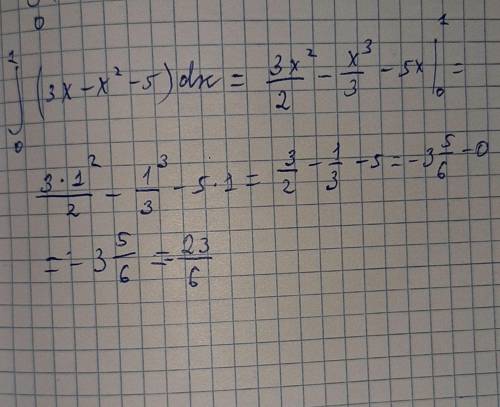 0
∫₀¹ (3x - x² - 5) dx = 3x²/2 - x³/3 - 5x |₀¹ =
3·1²/2 - 1³/3 - 5·1 = 3/2 - 1/3 - 5 = -3 5/6 - 0
= -3 5/6 = 23/6